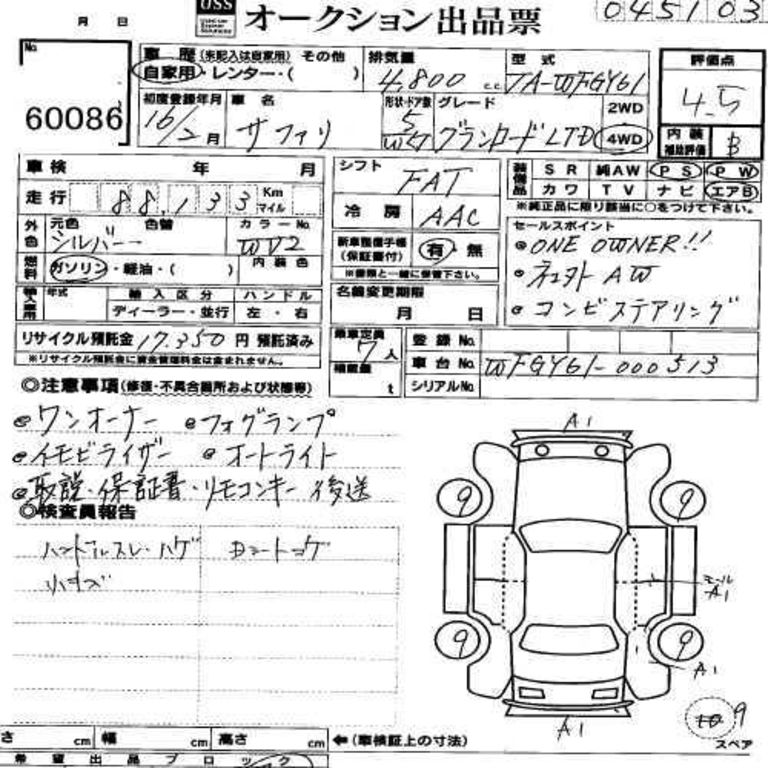 USS オークション出品票 045103
月 日
No.
60086
車歴 (未記入は自家用) その他 自家用・レンター・( )
排気量 4,800 c.c.
型式 TA-WFGY61
評価点 4.5
内装補助評価 B
初度登録年月 16/2月
車名 サファリ
形状・ドア数 5 WG
グレード グランロードLTD
2WD
4WD
車検 年 月
シフト FAT
装備品 SR 純AW PS PW
カワ TV ナビ エアB
※純正品に限り該当に○をつけて下さい。
走行 88,133 Km マイル
冷房 AAC
外色 元色 シルバー 色替 カラーNo. WV2
新車整備手帳(保証書付) 有 無
※書類と一緒に保管下さい。
セールスポイント
ONE OWNER!!
AW
コンビステアリング
燃料 ガソリン・軽油・( ) 内装色
輸入車用 年式 輸入区分 ハンドル
ディーラー・並行 左・右
名義変更期限 月 日
リサイクル預託金 17,350 円 預託済み
※リサイクル預託金に資金管理料金は含まれません。
乗車定員 7人
積載量 t
登録No.
車台No. WFGY61-000513
シリアルNo.
◎注意事項(修復・不具合箇所および状態等)
ワンオーナー フォグランプ
イモビライザー オートライト
取説・保証書・リモコンキー 後送
◎検査員報告
ハンドルスレ・ハゲ Dシートコゲ
小キズ
A1
9 9
モール A1
9 9
A1
A1
9
スペア
さ cm 幅 cm 高さ cm ←(車検証上の寸法)
希望出品ブロック